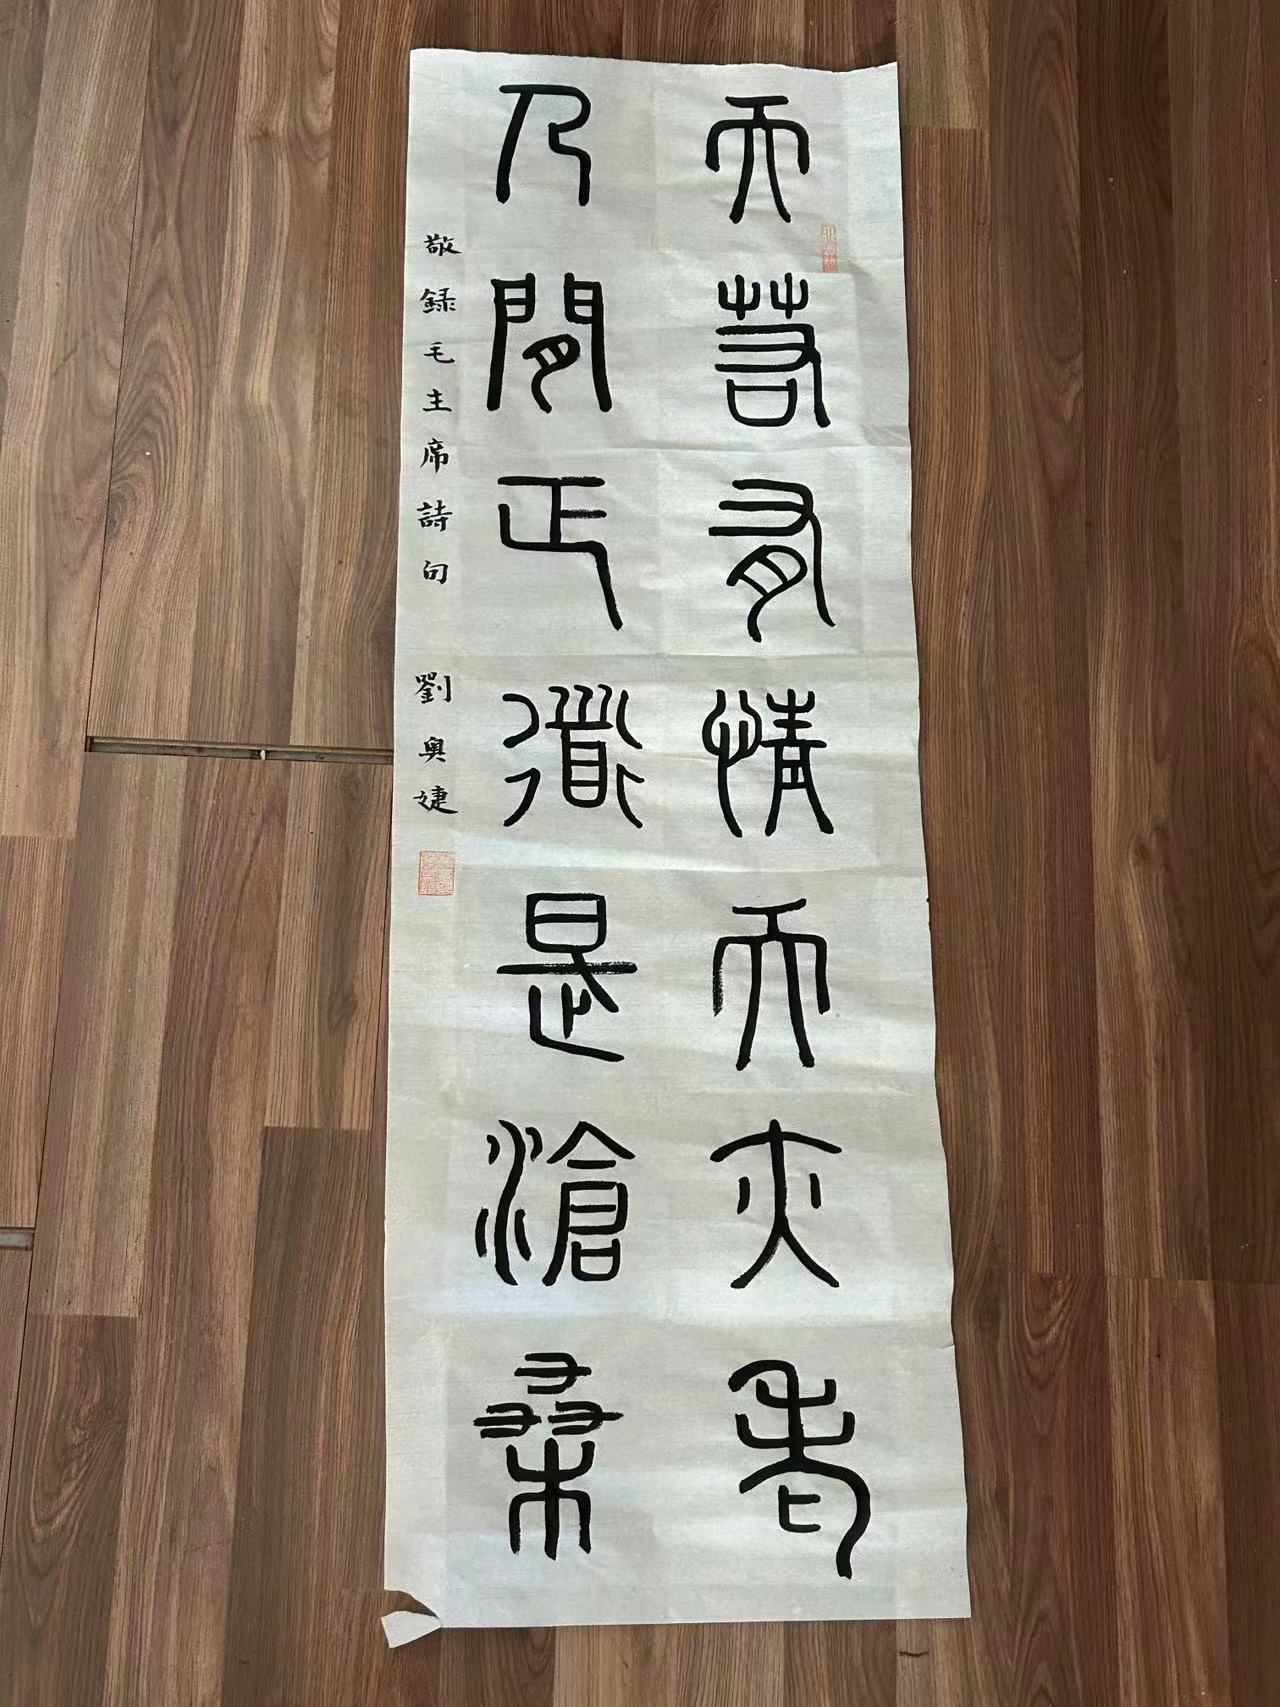 天若有情天亦老
人閒正道是滄桑
敬録毛主席詩句 劉奥婕